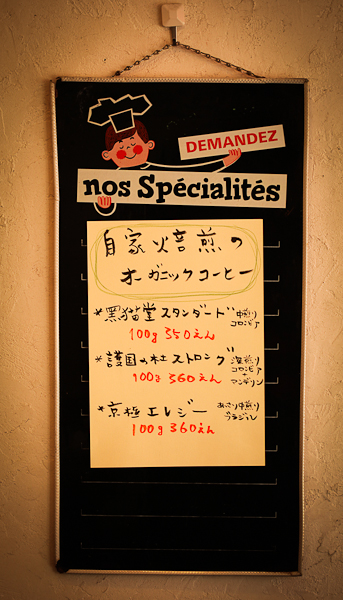 DEMANDEZ
nos Spécialités
自家焙煎の
オーガニックコーヒー
*黒猫堂スタンダード 中煎り
コロンビア
100g 350えん
*護国の杜ストロング 深煎り
コロンビア
+
マンデリン
100g 360えん
*京極エレジー あさり中煎り
ブラジル
100g 360えん